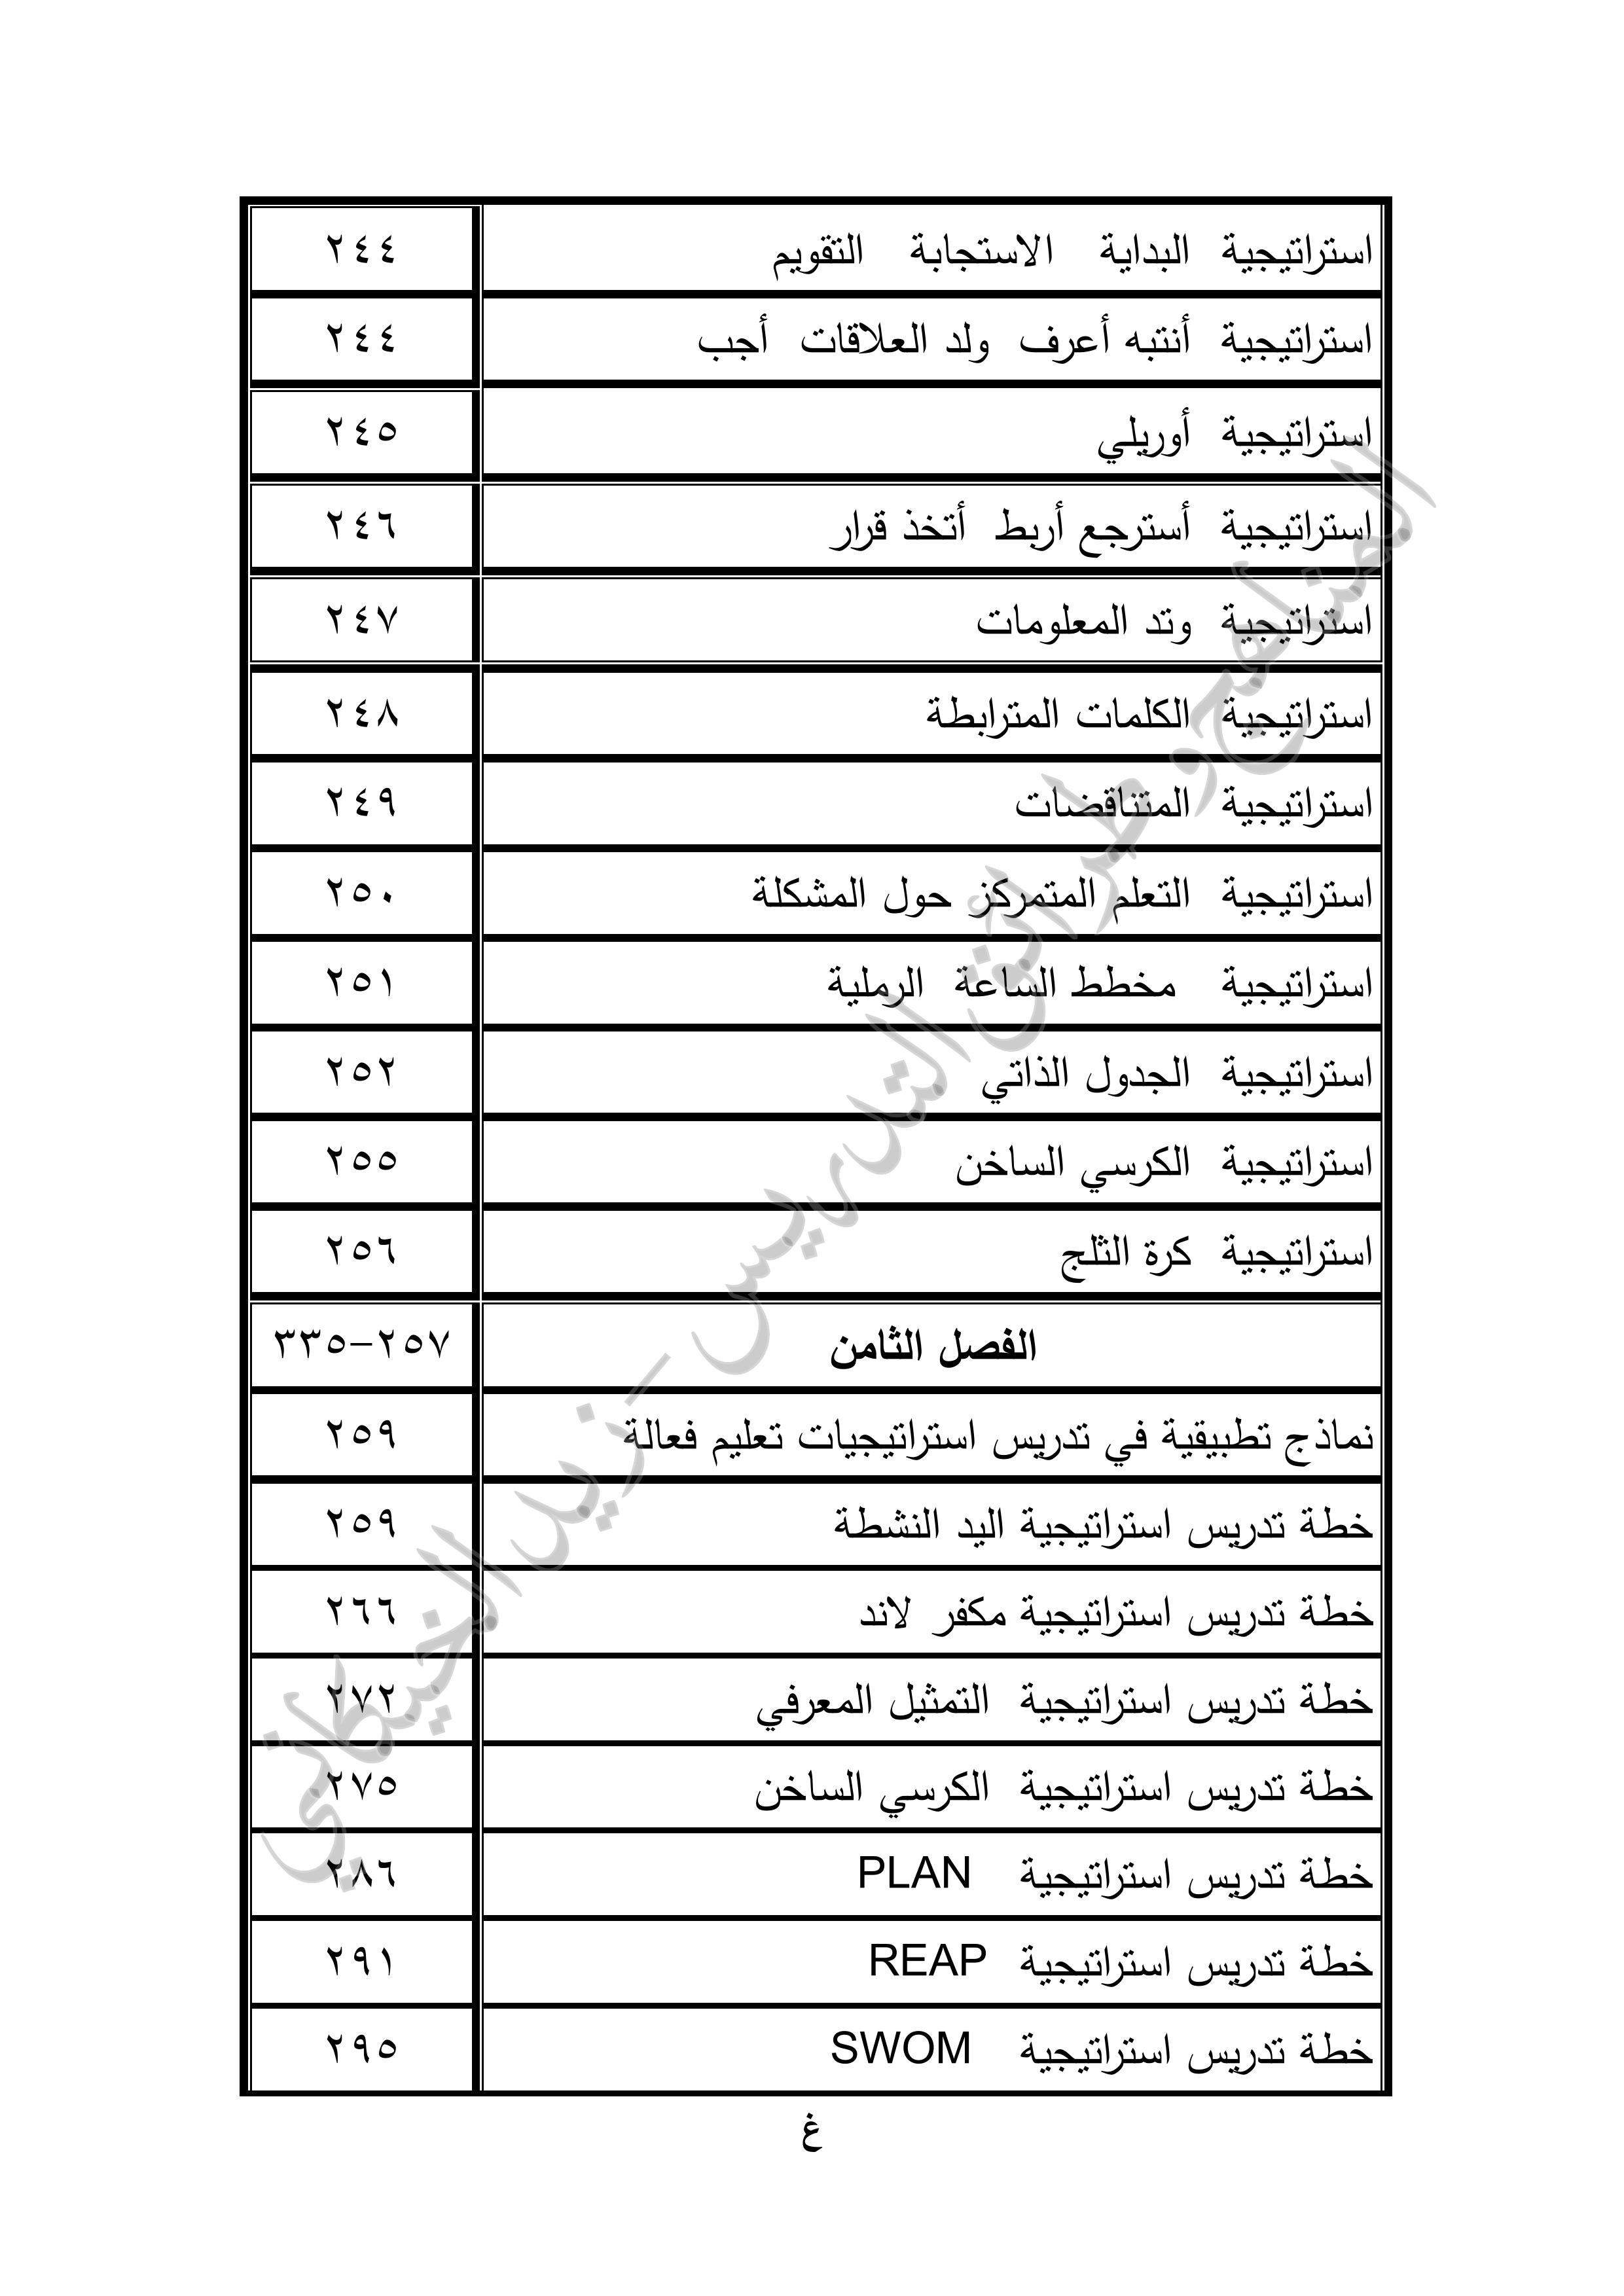 استراتيجية البداية الاستجابة التقويم ٢٤٤
استراتيجية أنتبه أعرف ولد العلاقات أجب ٢٤٤
استراتيجية أوريلي ٢٤٥
استراتيجية أسترجع أربط أتخذ قرار ٢٤٦
استراتيجية وتد المعلومات ٢٤٧
استراتيجية الكلمات المترابطة ٢٤٨
استراتيجية المتناقضات ٢٤٩
استراتيجية التعلم المتمركز حول المشكلة ٢٥٠
استراتيجية مخطط الساعة الرملية ٢٥١
استراتيجية الجدول الذاتي ٢٥٢
استراتيجية الكرسي الساخن ٢٥٥
استراتيجية كرة الثلج ٢٥٦
الفصل الثامن ٢٥٧-٣٣٥
نماذج تطبيقية في تدريس استراتيجيات تعليم فعالة ٢٥٩
خطة تدريس استراتيجية اليد النشطة ٢٥٩
خطة تدريس استراتيجية مكفر لاند ٢٦٦
خطة تدريس استراتيجية التمثيل المعرفي ٢٧٢
خطة تدريس استراتيجية الكرسي الساخن ٢٧٥
خطة تدريس استراتيجية PLAN ٢٨٦
خطة تدريس استراتيجية REAP ٢٩١
خطة تدريس استراتيجية SWOM ٢٩٥
غ
المناهج وطرائق التدريس - زيد الخيكاني